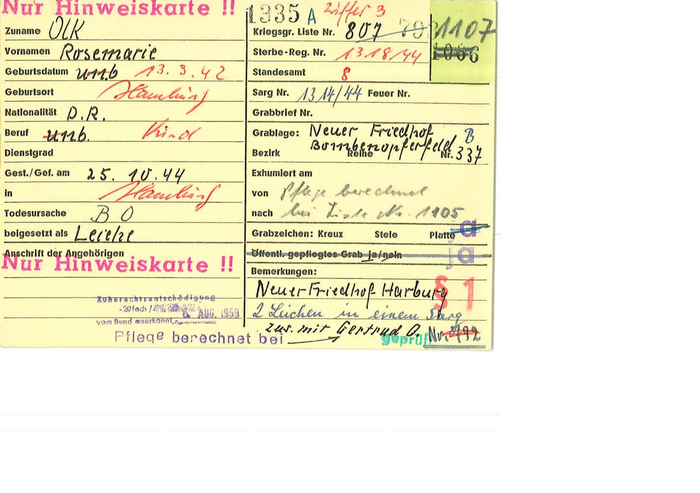 Nur Hinweiskarte !!
1335 A Ziffer 3
1107
Zuname OLK
Kriegsgr. Liste Nr. 807
Vornamen Rosemarie
Sterbe-Reg. Nr. 1318/44
1066
Geburtsdatum unb 13. 3. 42
Standesamt 8
Geburtsort Hamburg
Sarg Nr. 1314/44 Feuer Nr.
Nationalität D.R.
Grabbrief Nr.
Beruf unb. Kind
Grablage: Neuer Friedhof B
Bombenopferfeld
Dienstgrad
Bezirk Reihe Nr. 337
Gest./Gef. am 25. 10. 44
Exhumiert am
in Hamburg
von Pflege berechnet
Todesursache B O
nach bei Liste Nr. 1905
beigesetzt als Leiche
Grabzeichen: Kreuz Stele Platte a
Anschrift der Angehörigen
Öffentl. gepflegtes Grab ja/nein a
Nur Hinweiskarte !!
Bemerkungen:
Neuer Friedhof Harburg § 1
Ruherechtsentschädigung
-20fach/
2 Leichen in einem Sarg
vom Bund anerkannt AUG. 1959
zus. mir Gertrud O. Nr. 792
Pflege berechnet bei
geprüft